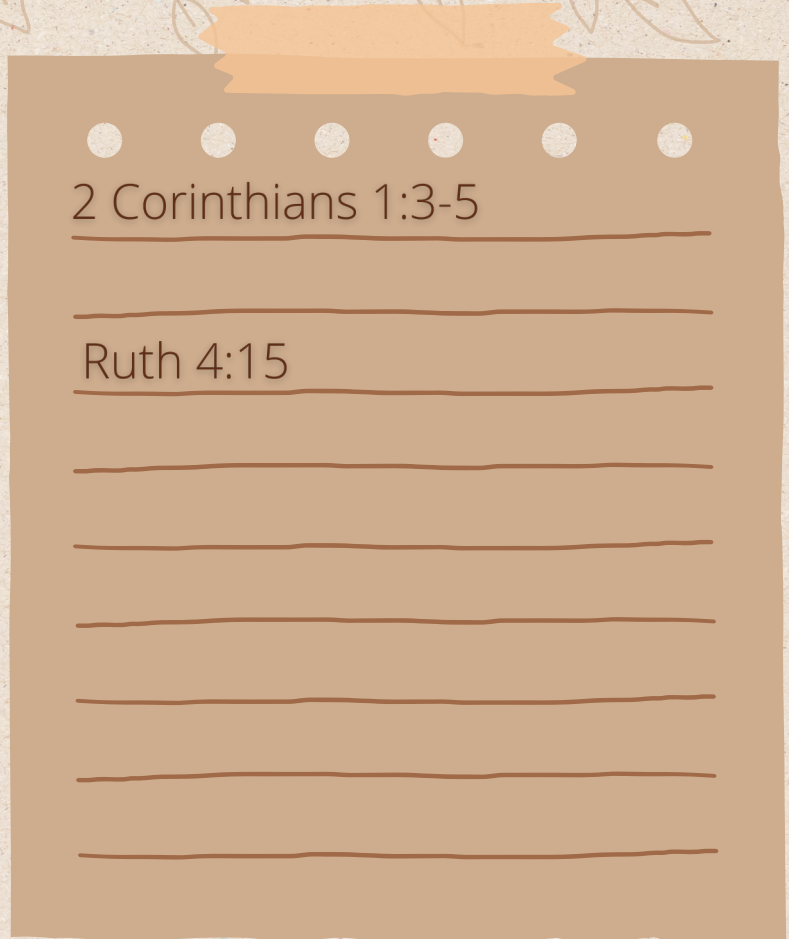 2 Corinthians 1:3-5
Ruth 4:15